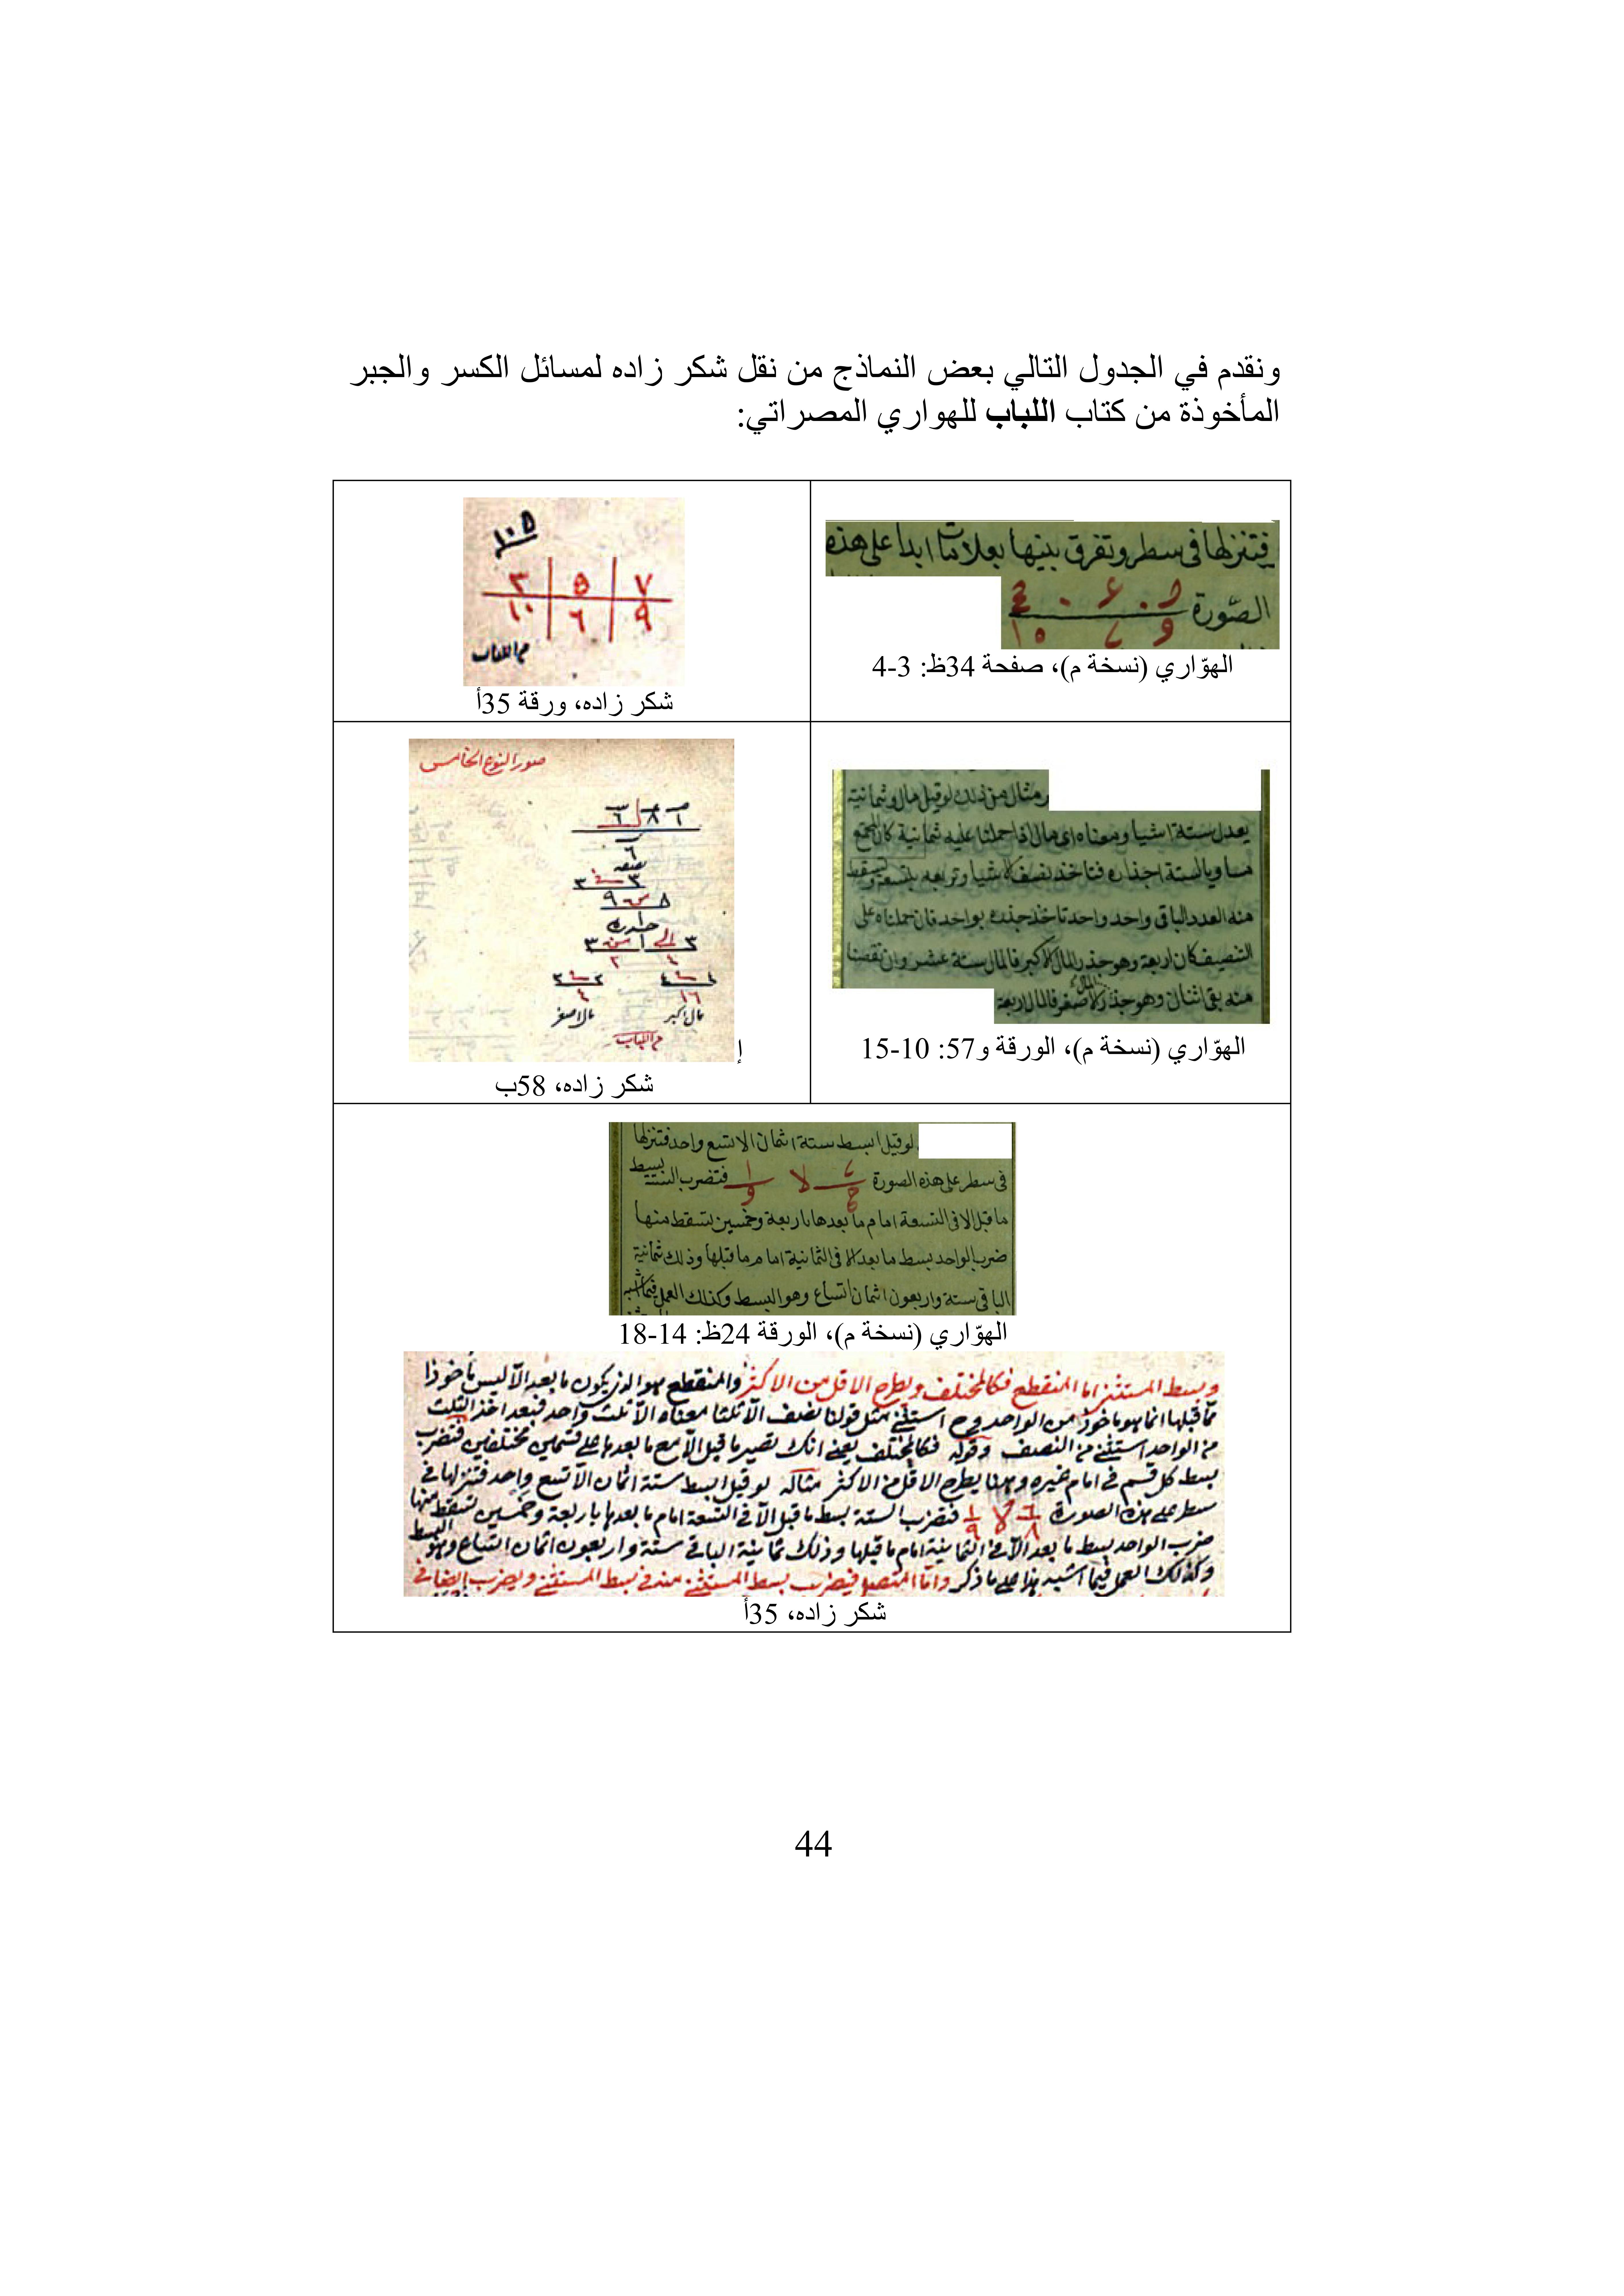 ونقدم في الجدول التالي بعض النماذج من نقل شكر زاده لمسائل الكسر والجبر
المأخوذة من كتاب اللباب للهواري المصراتي:
فتنزلها في سطر وتفرق بينها بعلامات ابدا على هذه
الصورة
الهوّاري (نسخة م)، صفحة 34ظ: 3-4
٣ ٥ ٧
١٠ ٦ ٩
من اللباب
شكر زاده، ورقة 35أ
ومثال من ذلك لو قيل مال وثمانية
يعدل ستة اشيا ومعناه اى مال اذا حملنا عليه ثمانية كان المجتمع
مساويا لستة اجذاره فتاخذ نصف الاشيا وتربعه بتسعة وتسقط
منه العدد الباقى واحد واحد تاخذ جذره بواحد فان حملناه على
التنصيف كان اربعة وهو جذر المال الاكبر فالمال ستة عشر وان نقصنا
منه بقى اثنان وهو جذر المال الاصغر فالمال اربعة
الهوّاري (نسخة م)، الورقة و57: 10-15
صور النوع الخامس
نصفه
٣ ٣
٨ من ٩
جذره
٣ الى ١ من ٣
مال اكبر مال اصغر
من اللباب
إ
شكر زاده، 58ب
لو قيل ابسط ستة اثمان الا تسع واحد فتنزلها
فى سطر على هذه الصورة لا فتضرب الستة بسط
ما قبل الا فى التسعة امام ما بعدها باربعة وخمسين تسقط منها
ضرب الواحد بسط ما بعد الا فى الثمانية امام ما قبلها وذلك ثمانية
الباقى ستة واربعون اثمان اتساع وهو البسط وكذلك العمل فيما اشبه
الهوّاري (نسخة م)، الورقة 24ظ: 14-18
وبسط المستثنى اما المنقطع فكالمختلف ويطرح الاقل من الاكثر والمنقطع هو الذى يكون ما بعد الا ليس ماخوذا
مما قبلها انما هو ماخوذ من الواحد استثنى مثل قولنا نصف الا ثلثا معناه الا ثلث واحد فبعد اخذ الثلث
من الواحد استثنى من النصف وقوله فكالمختلف يعنى انك تصير ما قبل الا مع ما بعدها على قسمين مختلفين فتضرب
بسط كل قسم فى امام غيره وهنا يطرح الاقل من الاكثر مثاله لو قيل ابسط ستة اثمان الا تسع واحد فتنزلها فى
سطر على هذه الصورة ٦/٨ لا ١/٩ فتضرب الستة بسط ما قبل الا فى التسعة امام ما بعدها باربعة وخمسين تسقط منها
ضرب الواحد بسط ما بعد الا فى الثمانية امام ما قبلها وذلك ثمانية الباقى ستة واربعون اثمان اتساع وهو البسط
وكذلك العمل فيما اشبه هذا على ما ذكر واما المتصل فيضرب بسط المستثنى منه فى بسط المستثنى ويضرب ايضا فى
شكر زاده، 35أ
44